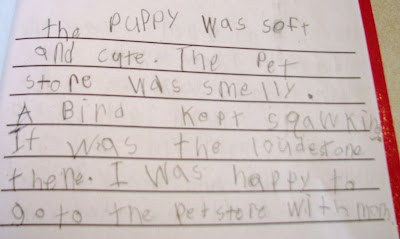 the PUPPY was soft
and cute. The Pet
store was smelly.
A Bird kept sqawking
It was the loudest one
there. I was happy to
go to the pet store with mom.